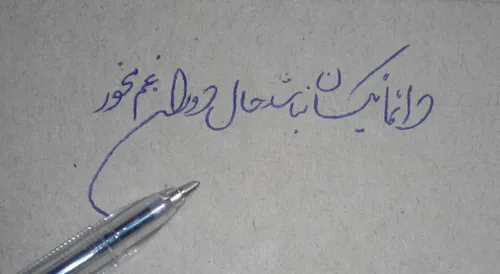 دائما یکسان نباشد حال دوران غم مخور